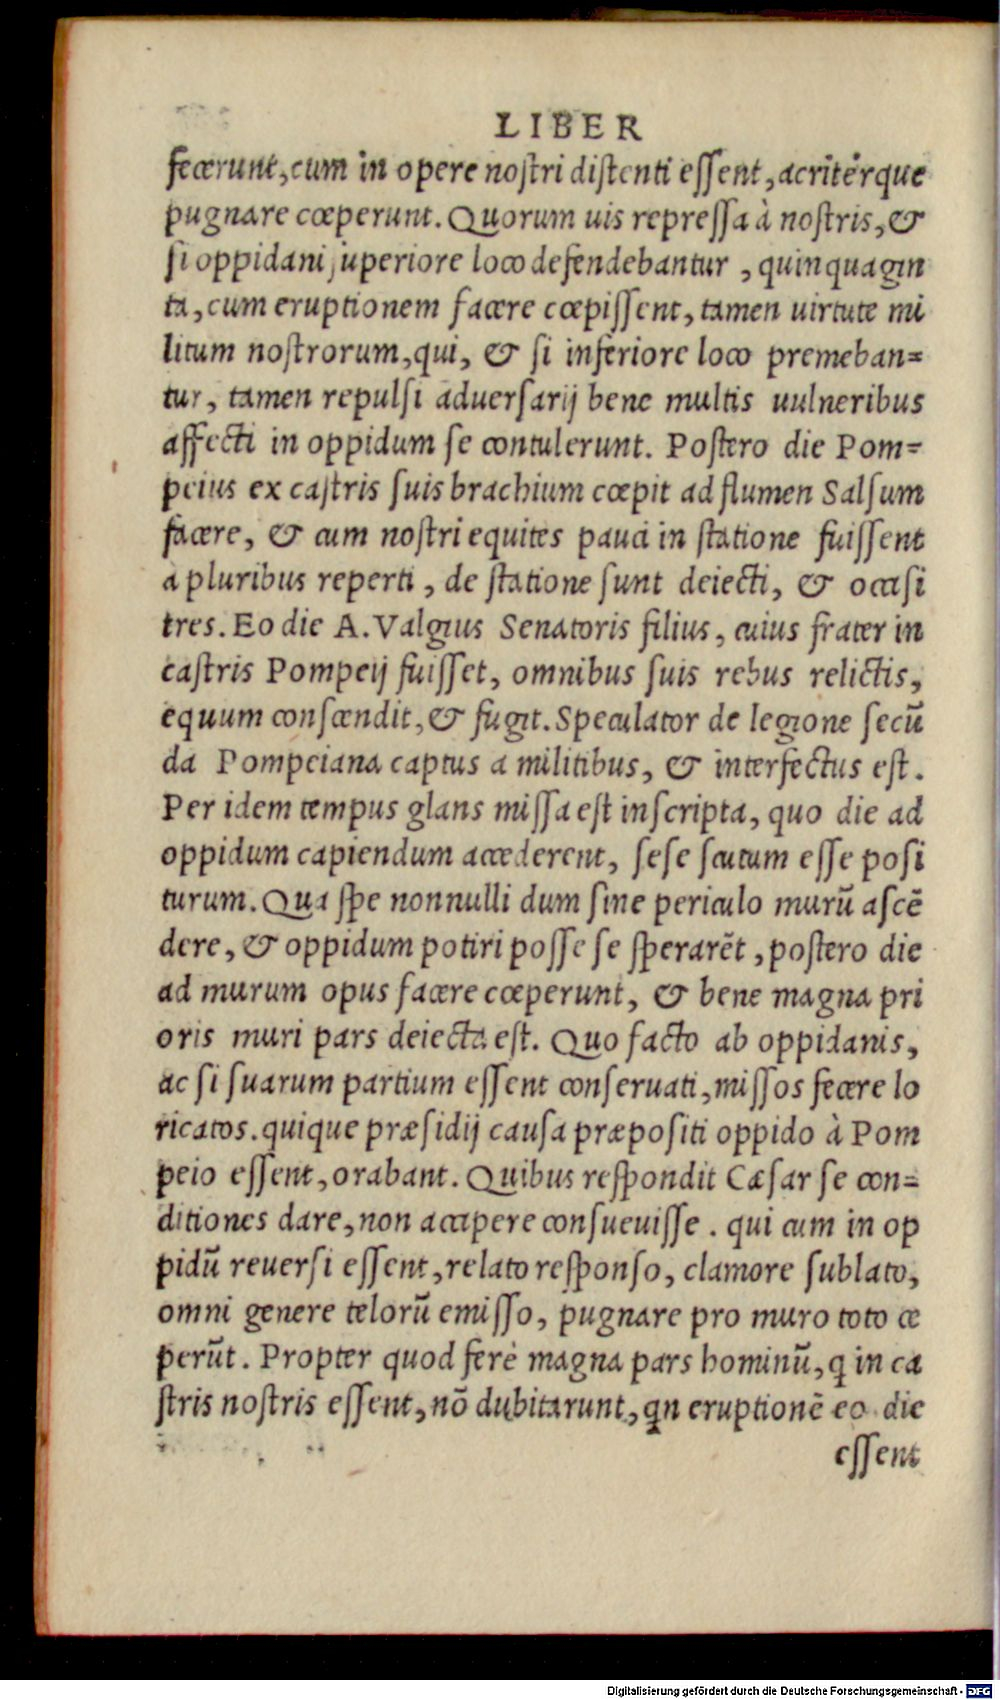 LIBER
fecerunt, cum in opere nostri distenti essent, acritérque
pugnare cœperunt. Quorum uis repressa à nostris, &
si oppidani superiore loco defendebantur, quinquagin
ta, cum eruptionem facere cœpissent, tamen uirtute mi
litum nostrorum, qui, & si inferiore loco premeban=
tur, tamen repulsi aduersarij bene multis uulneribus
affecti in oppidum se contulerunt. Postero die Pom=
peius ex castris suis brachium cœpit ad flumen Salsum
facere, & cum nostri equites pauci in statione fuissent
a pluribus reperti, de statione sunt deiecti, & occisi
tres. Eo die A. Valgius Senatoris filius, cuius frater in
castris Pompeij fuisset, omnibus suis rebus relictis,
equum conscendit, & fugit. Speculator de legione secũ
da Pompeiana captus a militibus, & interfectus est.
Per idem tempus glans missa est inscripta, quo die ad
oppidum capiendum accederent, sese scutum esse posi
turum. Qua spe nonnulli dum sine periculo murũ ascẽ
dere, & oppidum potiri posse se sperarẽt, postero die
ad murum opus facere cœperunt, & bene magna pri
oris muri pars deiecta est. Quo facto ab oppidanis,
ac si suarum partium essent conseruati, missos fecere lo
ricatos. quique præsidij causa præpositi oppido à Pom
peio essent, orabant. Quibus respondit Cæsar se con=
ditiones dare, non accipere consueuisse. qui cum in op
pidũ reuersi essent, relato responso, clamore sublato,
omni genere telorũ emisso, pugnare pro muro toto cœ
perũt. Propter quod ferè magna pars hominũ, q̃ in ca
stris nostris essent, nõ dubitarunt, qn eruptionẽ eo die
essent
Digitalisierung gefördert durch die Deutsche Forschungsgemeinschaft - DFG